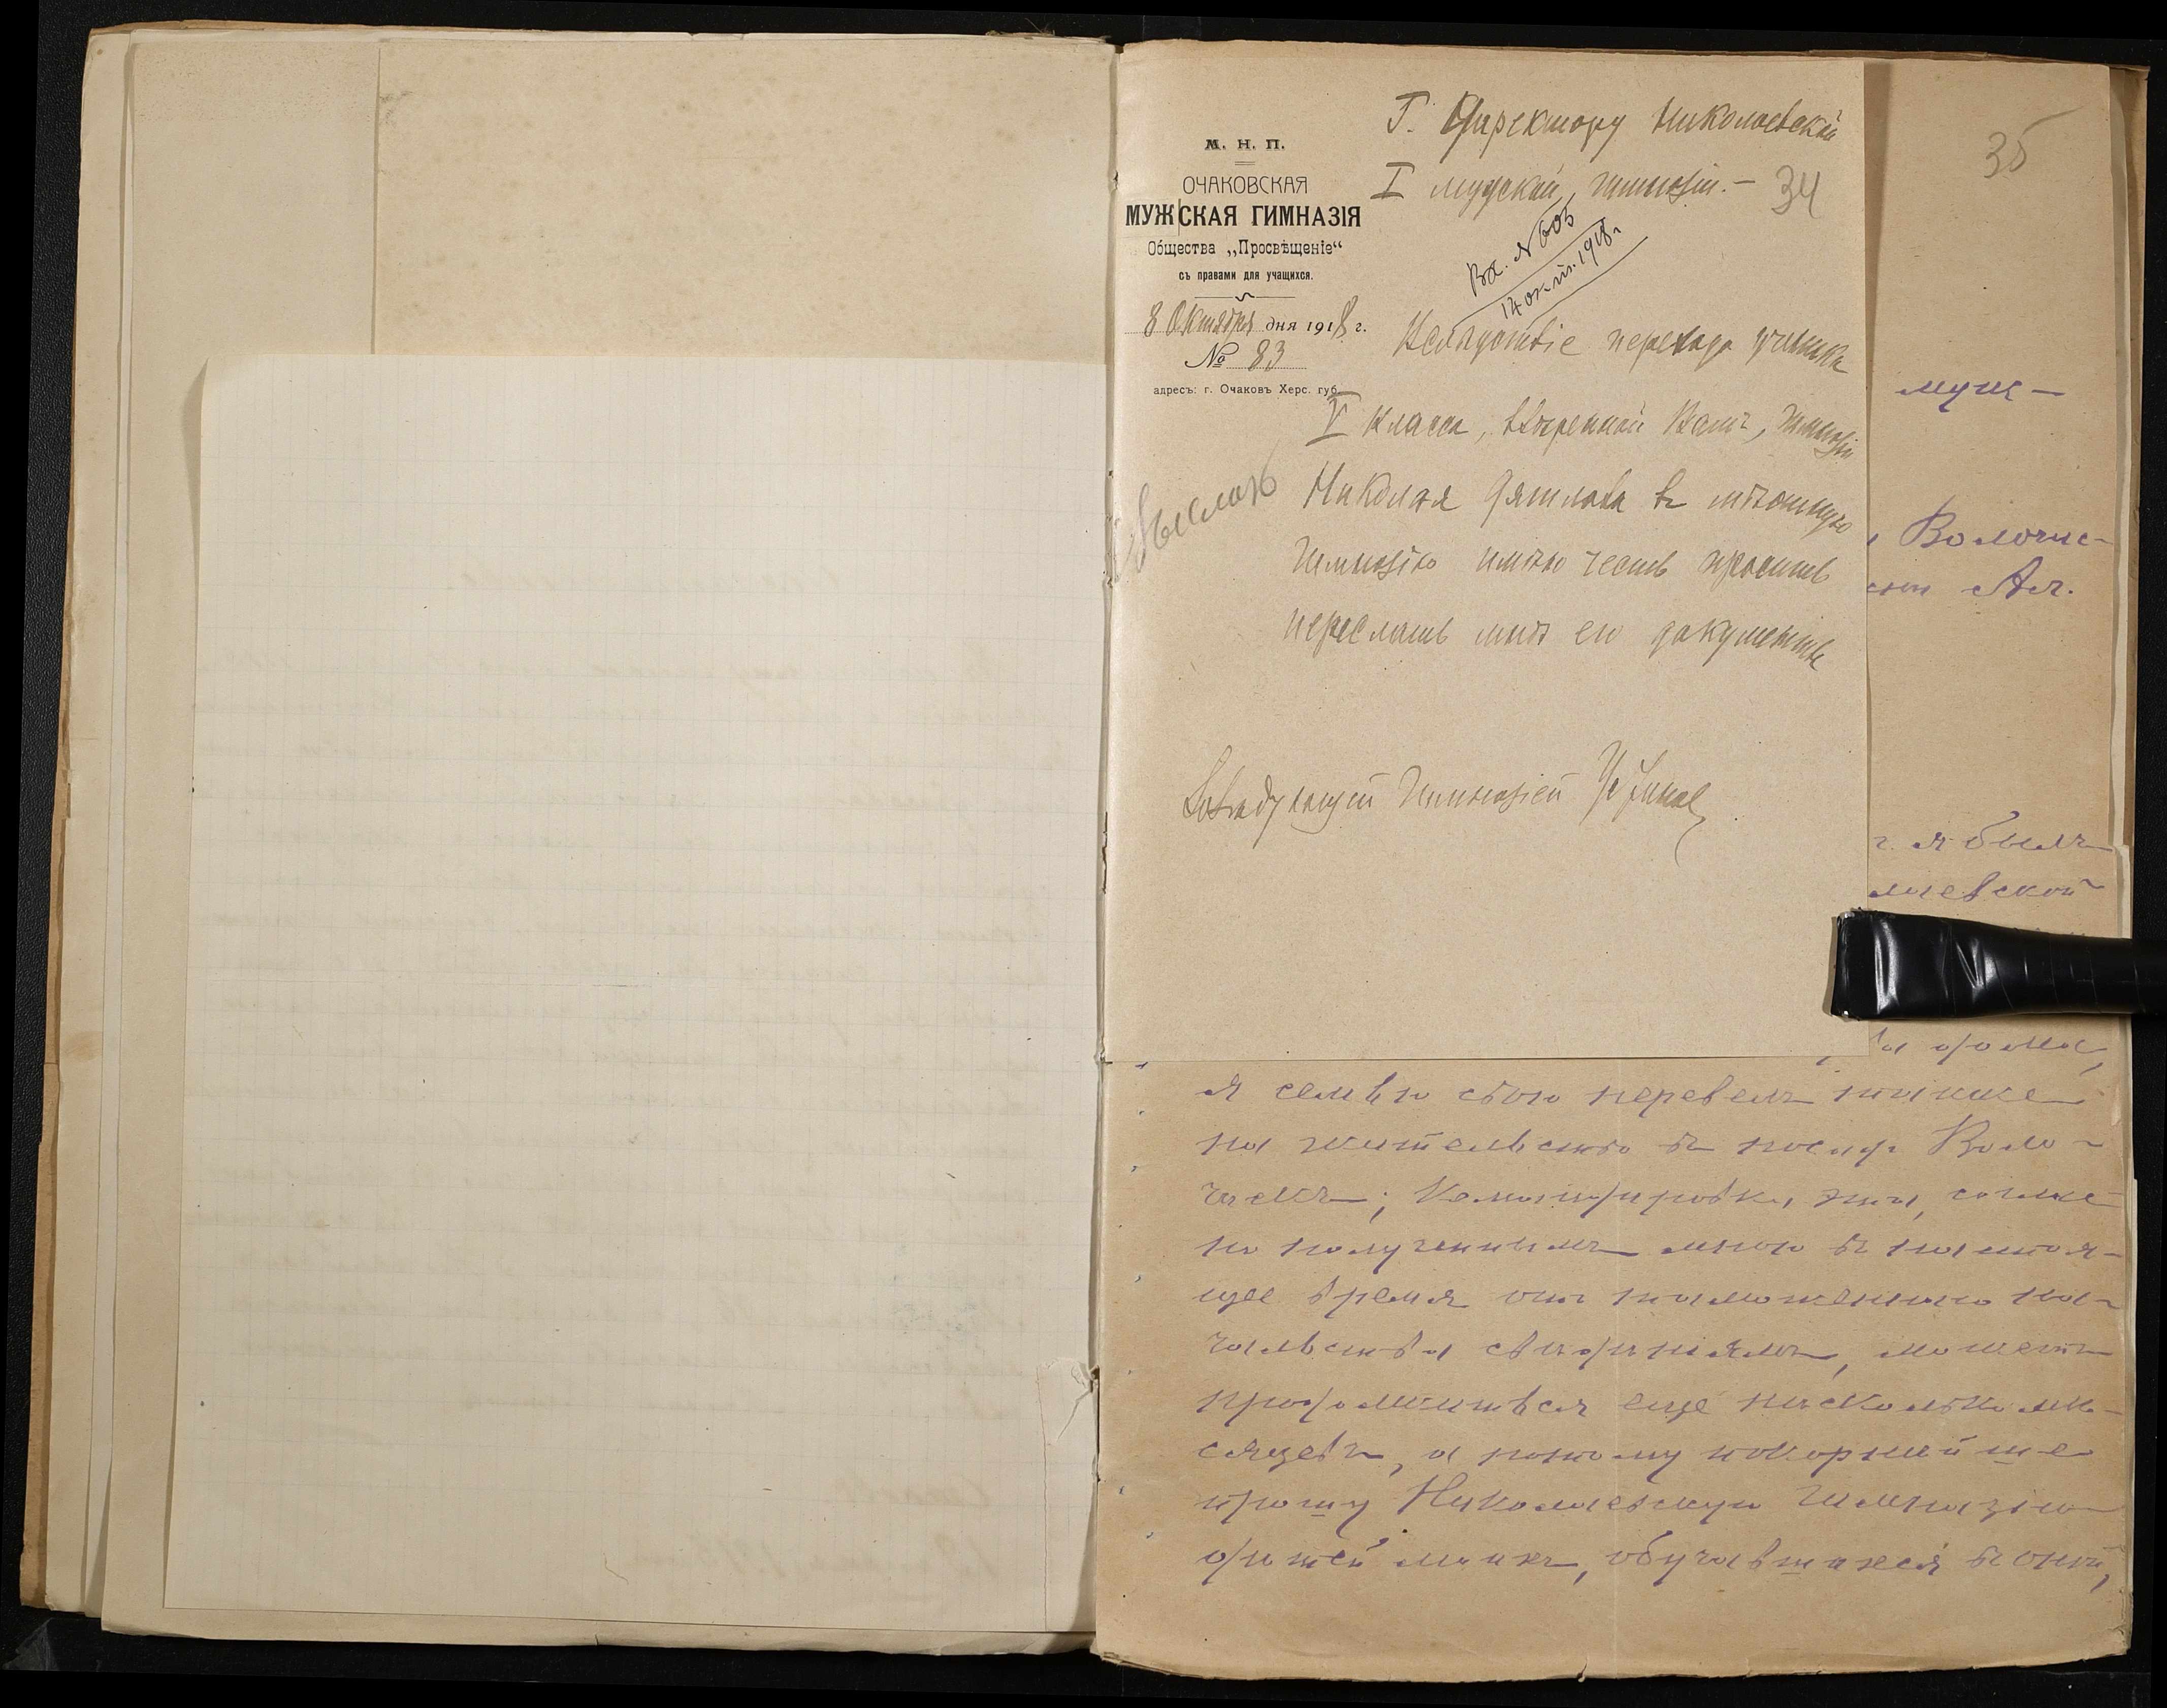 М. Н. П.
ОЧАКОВСКАЯ
МУЖСКАЯ ГИМНАЗІЯ
Общества „Просвѣщеніе“
съ правами для учащихся.
8 Октября дня 1918 г.
№ 83
адресъ: г. Очаковъ Херс. губ.
Г. Директору Николаевской
I мужской гимназіи. —
34
Вх. № 603
14 окт. 1918 г.
Вслѣдствіе перехода ученика
V класса, ввѣренной Вамъ, гимназіи
Николая Дятлова въ мѣстную
гимназію имѣю честь просить
переслать мнѣ его документы
Завѣдующій Гимназіей
35
муж-
Волочис-
Ал.
г. я былъ
лаевской
я семью свою перевелъ также
на жительство въ посад. Воло-
чискъ; Командировка эта, соглас-
но полученнымъ мною въ настоя-
щее время отъ таможеннаго на-
чальства свѣдѣніямъ, можетъ
продолжиться еще нѣсколько мѣ-
сяцевъ, а потому покорнѣйше
прошу Николаевскую Гимназію
дѣтей моихъ, обучавшихся въ оной,